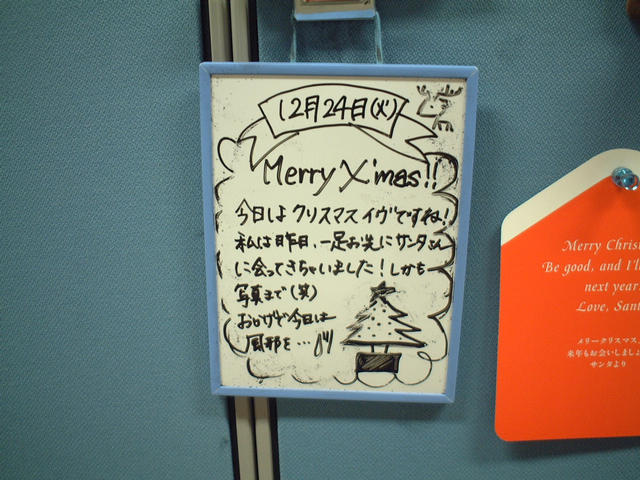 12月24日(火)
Merry X'mas!!
今日は クリスマスイヴですね!
私は昨日、一足お先にサンタさん
に会ってきちゃいました!しかも
写真まで(笑)
おかげで今日は
風邪を…
Merry Chris
Be good, and I'll
next year
Love, Sant
メリークリスマス
来年もお会いしましょ
サンタより